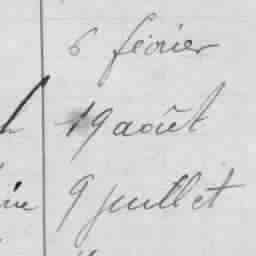 6 février
19 août
9 juillet